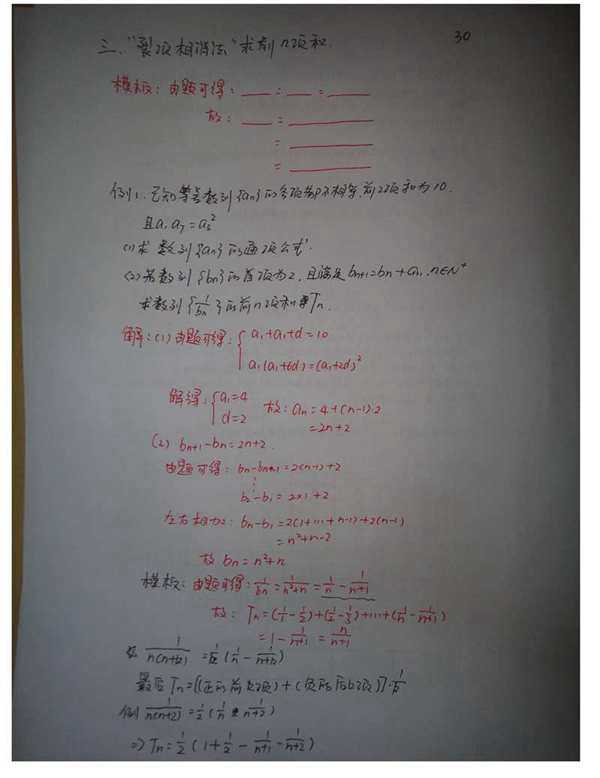 三、"裂项相消法"求前n项和. 30
模板: 由题可得: ___ = ___ = ____
故: ___ = ________
= ________
= ________
例1、已知等差数列{an}的各项都不相等,前2项和为10,
且a1a7=a3²
(1)求数列{an}的通项公式.
(2)若数列{bn}的首项为2,且满足bn+1=bn+an,n∈N+
求数列{1/bn}的前n项和Tn.
解:(1)由题可得:{a1+a1+d=10
a1(a1+6d)=(a1+2d)²
解得:{a1=4
d=2 故:an=4+(n-1)·2
=2n+2
(2) bn+1-bn=2n+2.
由题可得: bn-bn-1=2(n-1)+2
⋮
b2-b1=2×1+2
左右相加: bn-b1=2(1+...+n-1)+2(n-1)
=n²+n-2
故 bn=n²+n
模板: 由题可得: 1/bn=1/n²+n=1/n-1/n+1
故: Tn=(1/1-1/2)+(1/2-1/3)+...+(1/n-1/n+1)
=1-1/n+1=n/n+1
1/n(n+b)=1/b(1/n-1/n+b)
最后Tn=[(正的前b项)+(负的后b项)]·1/b
例 1/n(n+2)=1/2(1/n-1/n+2)
=>Tn=1/2(1+1/2-1/n+1-1/n+2)